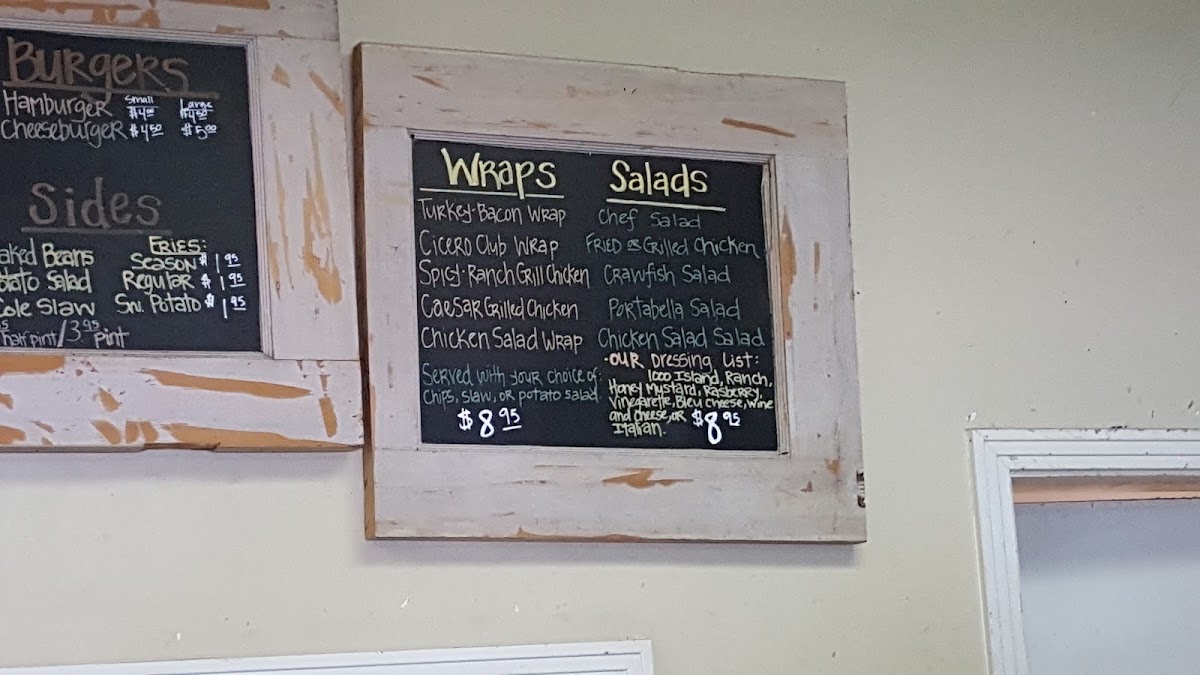 Burgers
Small Large
Hamburger $4.00 $4.50
Cheeseburger $4.50 $5.00
Sides
aked Beans
otato Salad
Cole Slaw
half pint/3.95 pint
Fries:
Season $1.95
Regular $1.95
Sw. Potato $1.95
Wraps
Turkey-Bacon Wrap
Cicero Club Wrap
Spicy-Ranch Grill Chicken
Caesar Grilled Chicken
Chicken Salad Wrap
Served with your choice of:
chips, slaw, or potato salad.
$8.95
Salads
Chef Salad
Fried or Grilled Chicken
Crawfish Salad
Portabella Salad
Chicken Salad Salad
·Our Dressing List:
1000 Island, Ranch,
Honey Mustard, Rasberry,
Vinegarette, Bleu Cheese, Wine
and Cheese, or $8.95
Italian.